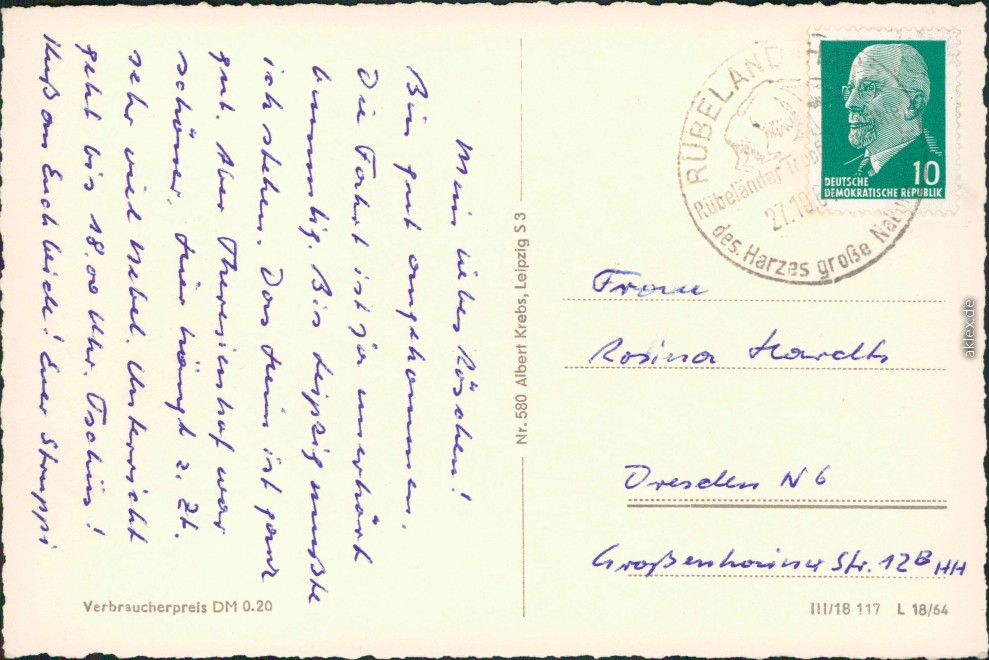 Mein liebes Röschen!
Bin gut angekommen.
Die Fahrt ist ja unerhört
bummlig. Bis Leipzig mußte
ich stehen. Das Heim ist ganz
gut. Aber Theresienhof war
schöner. Hier hängt z. Zt.
sehr viel Nebel. Unterricht
geht bis 18.00 Uhr. Tschüs!
Kuß an Euch beide! Euer Struppi
Verbraucherpreis DM 0.20
Nr. 580 Albert Krebs, Leipzig S 3
RÜBELAND
Rübeländer
27.10.
des Harzes große
10
DEUTSCHE
DEMOKRATISCHE REPUBLIK
Frau
Rosina Hardth
Dresden N 6
Großenhainer Str. 12B HH
III/18 117 L 18/64
aklex.de